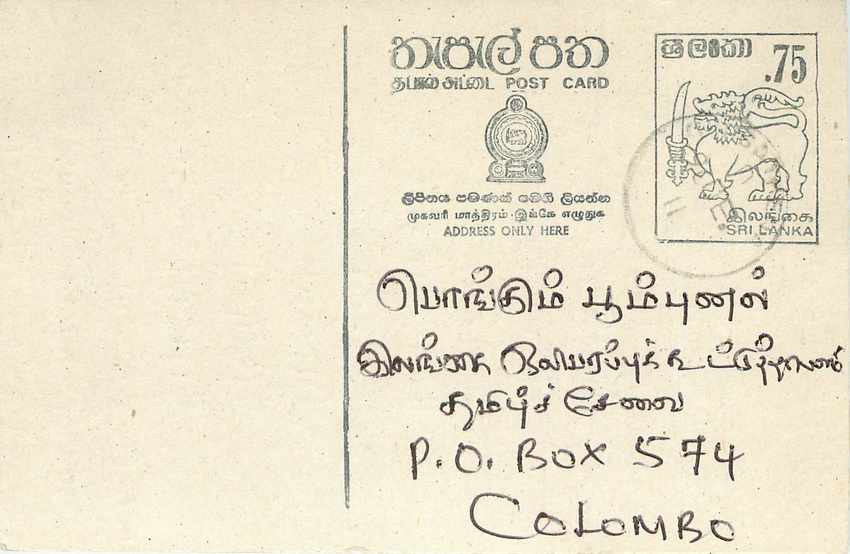 තැපැල් පත
தபால் அட்டை POST CARD
ලිපිනය පමණක් පමයි ලියන්න
முகவரி மாத்திரம் இங்கே எழுதுக
ADDRESS ONLY HERE
ශ්‍රී ලංකා
.75
இலங்கை
SRI LANKA
பொங்கும் பூம்புனல்
இலங்கை ஒலிபரப்புக் கூட்டுத்தாபனம்
தமிழ்ச் சேவை
P.O. BOX 574
COLOMBO